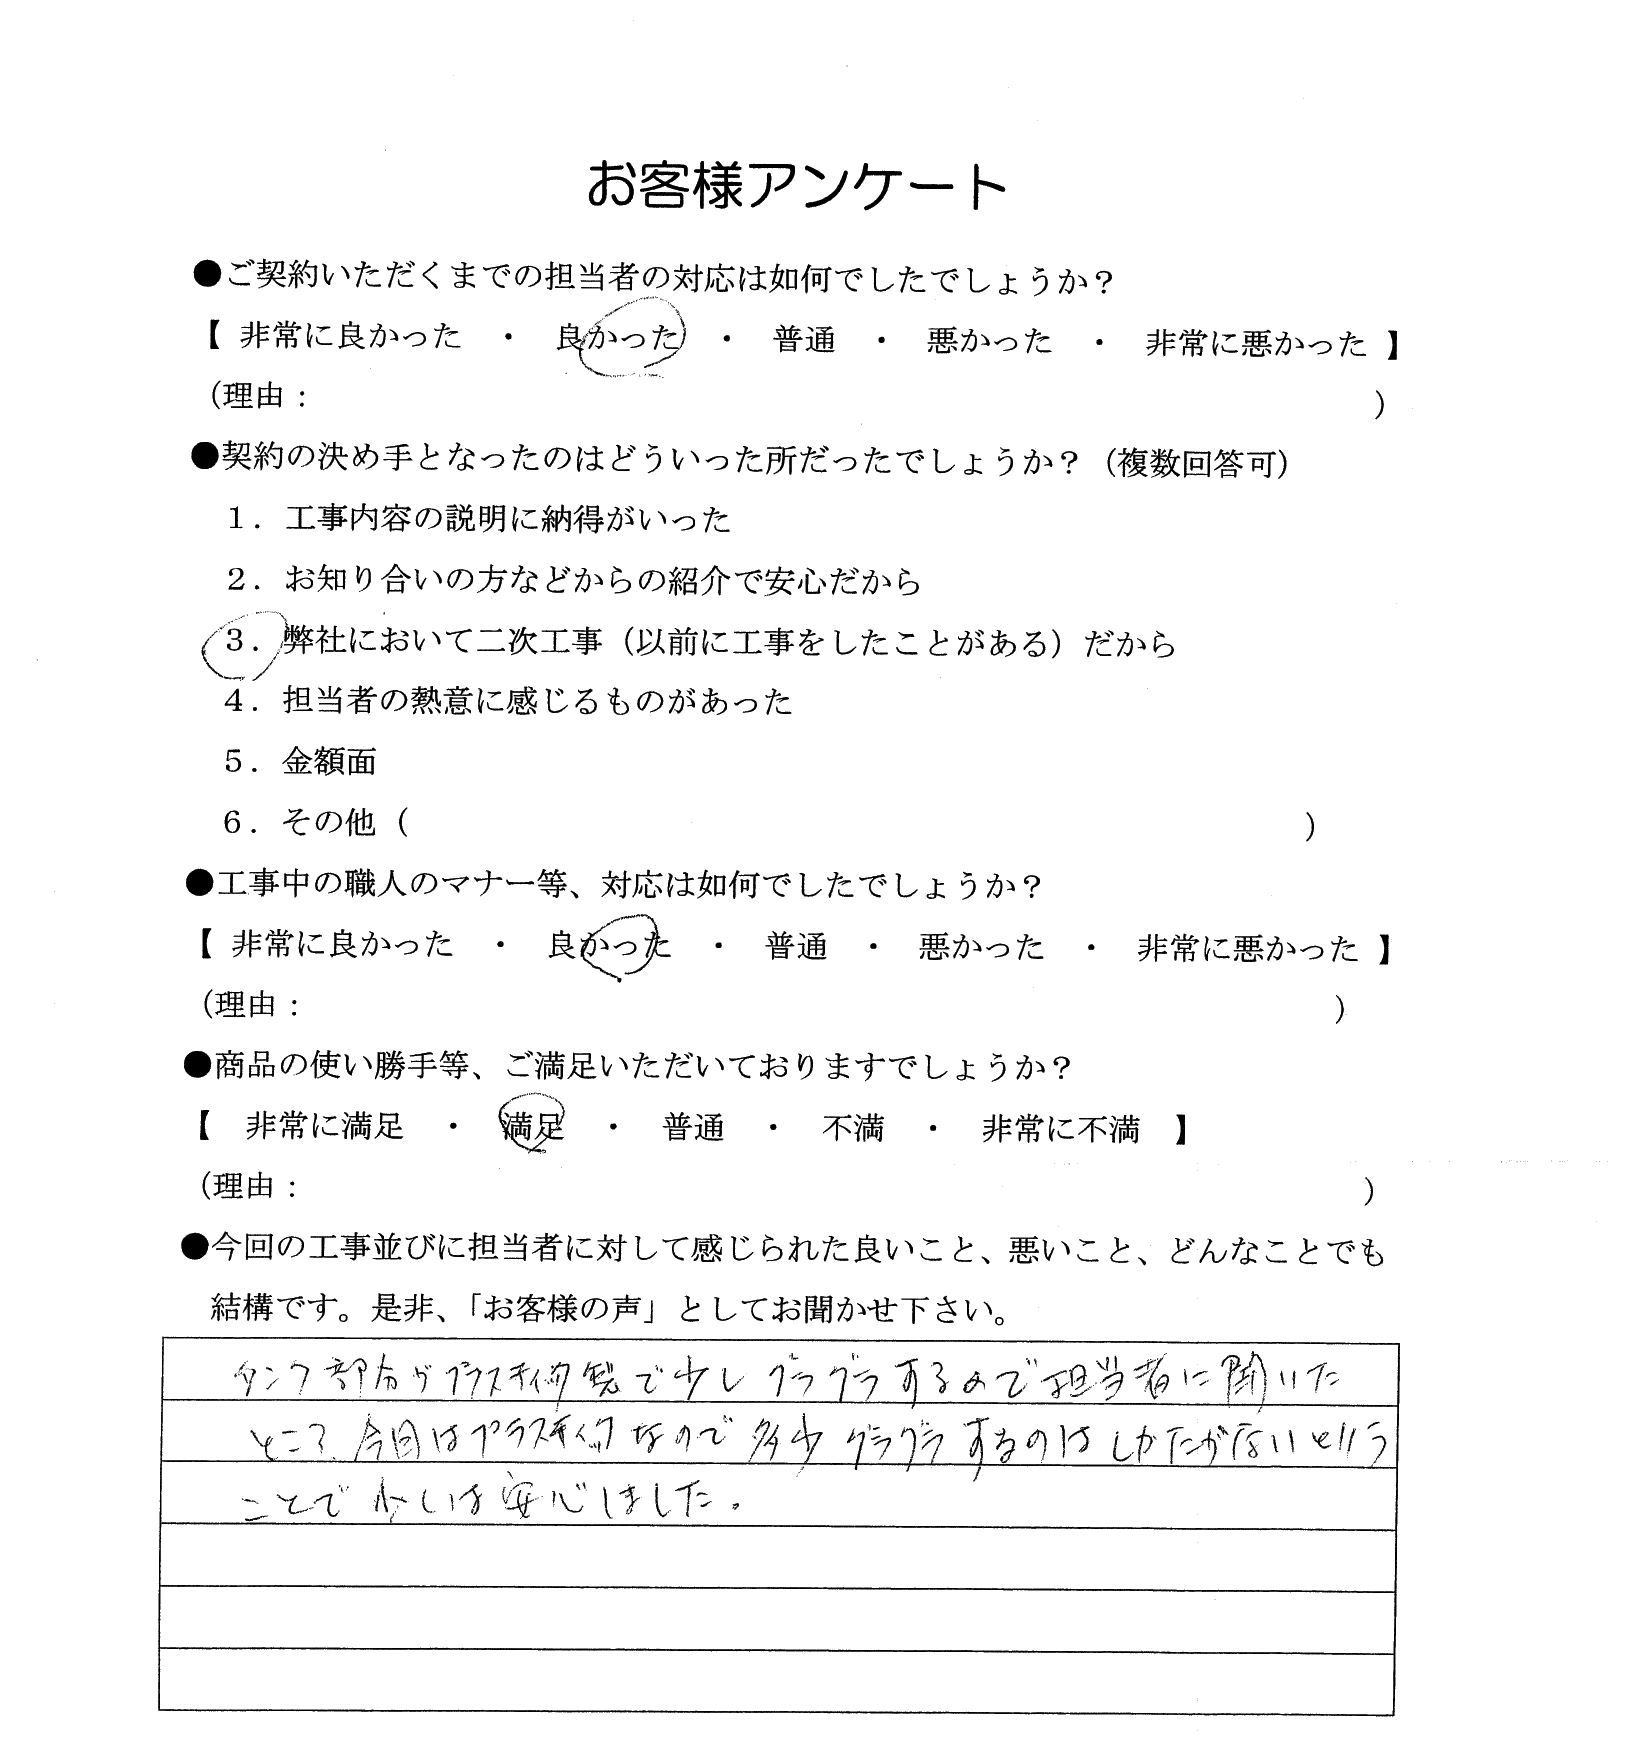 お客様アンケート
●ご契約いただくまでの担当者の対応は如何でしたでしょうか？
【 非常に良かった ・ 良かった ・ 普通 ・ 悪かった ・ 非常に悪かった 】
（理由： ）
●契約の決め手となったのはどういった所だったでしょうか？（複数回答可）
１．工事内容の説明に納得がいった
２．お知り合いの方などからの紹介で安心だから
３．弊社において二次工事（以前に工事をしたことがある）だから
４．担当者の熱意に感じるものがあった
５．金額面
６．その他（ ）
●工事中の職人のマナー等、対応は如何でしたでしょうか？
【 非常に良かった ・ 良かった ・ 普通 ・ 悪かった ・ 非常に悪かった 】
（理由： ）
●商品の使い勝手等、ご満足いただいておりますでしょうか？
【 非常に満足 ・ 満足 ・ 普通 ・ 不満 ・ 非常に不満 】
（理由： ）
●今回の工事並びに担当者に対して感じられた良いこと、悪いこと、どんなことでも
結構です。是非、「お客様の声」としてお聞かせ下さい。
タンク部分がプラスティック製で少しグラグラするので担当者に聞いた
ところ今回はプラスティックなので多少グラグラするのはしかたがないという
ことで少しは安心しました。